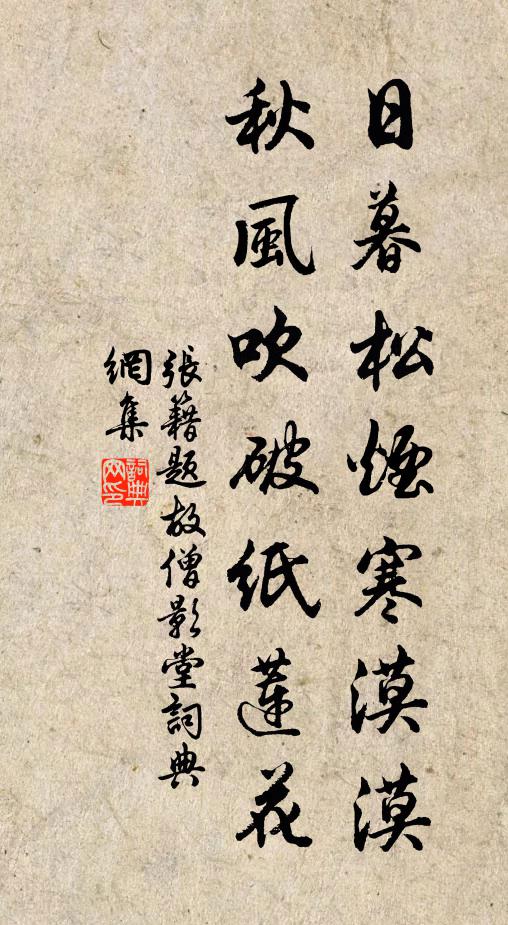 日暮松煙寒漠漠
秋風吹破紙蓮花
張籍題故僧影堂詞典
網集
詞典網印